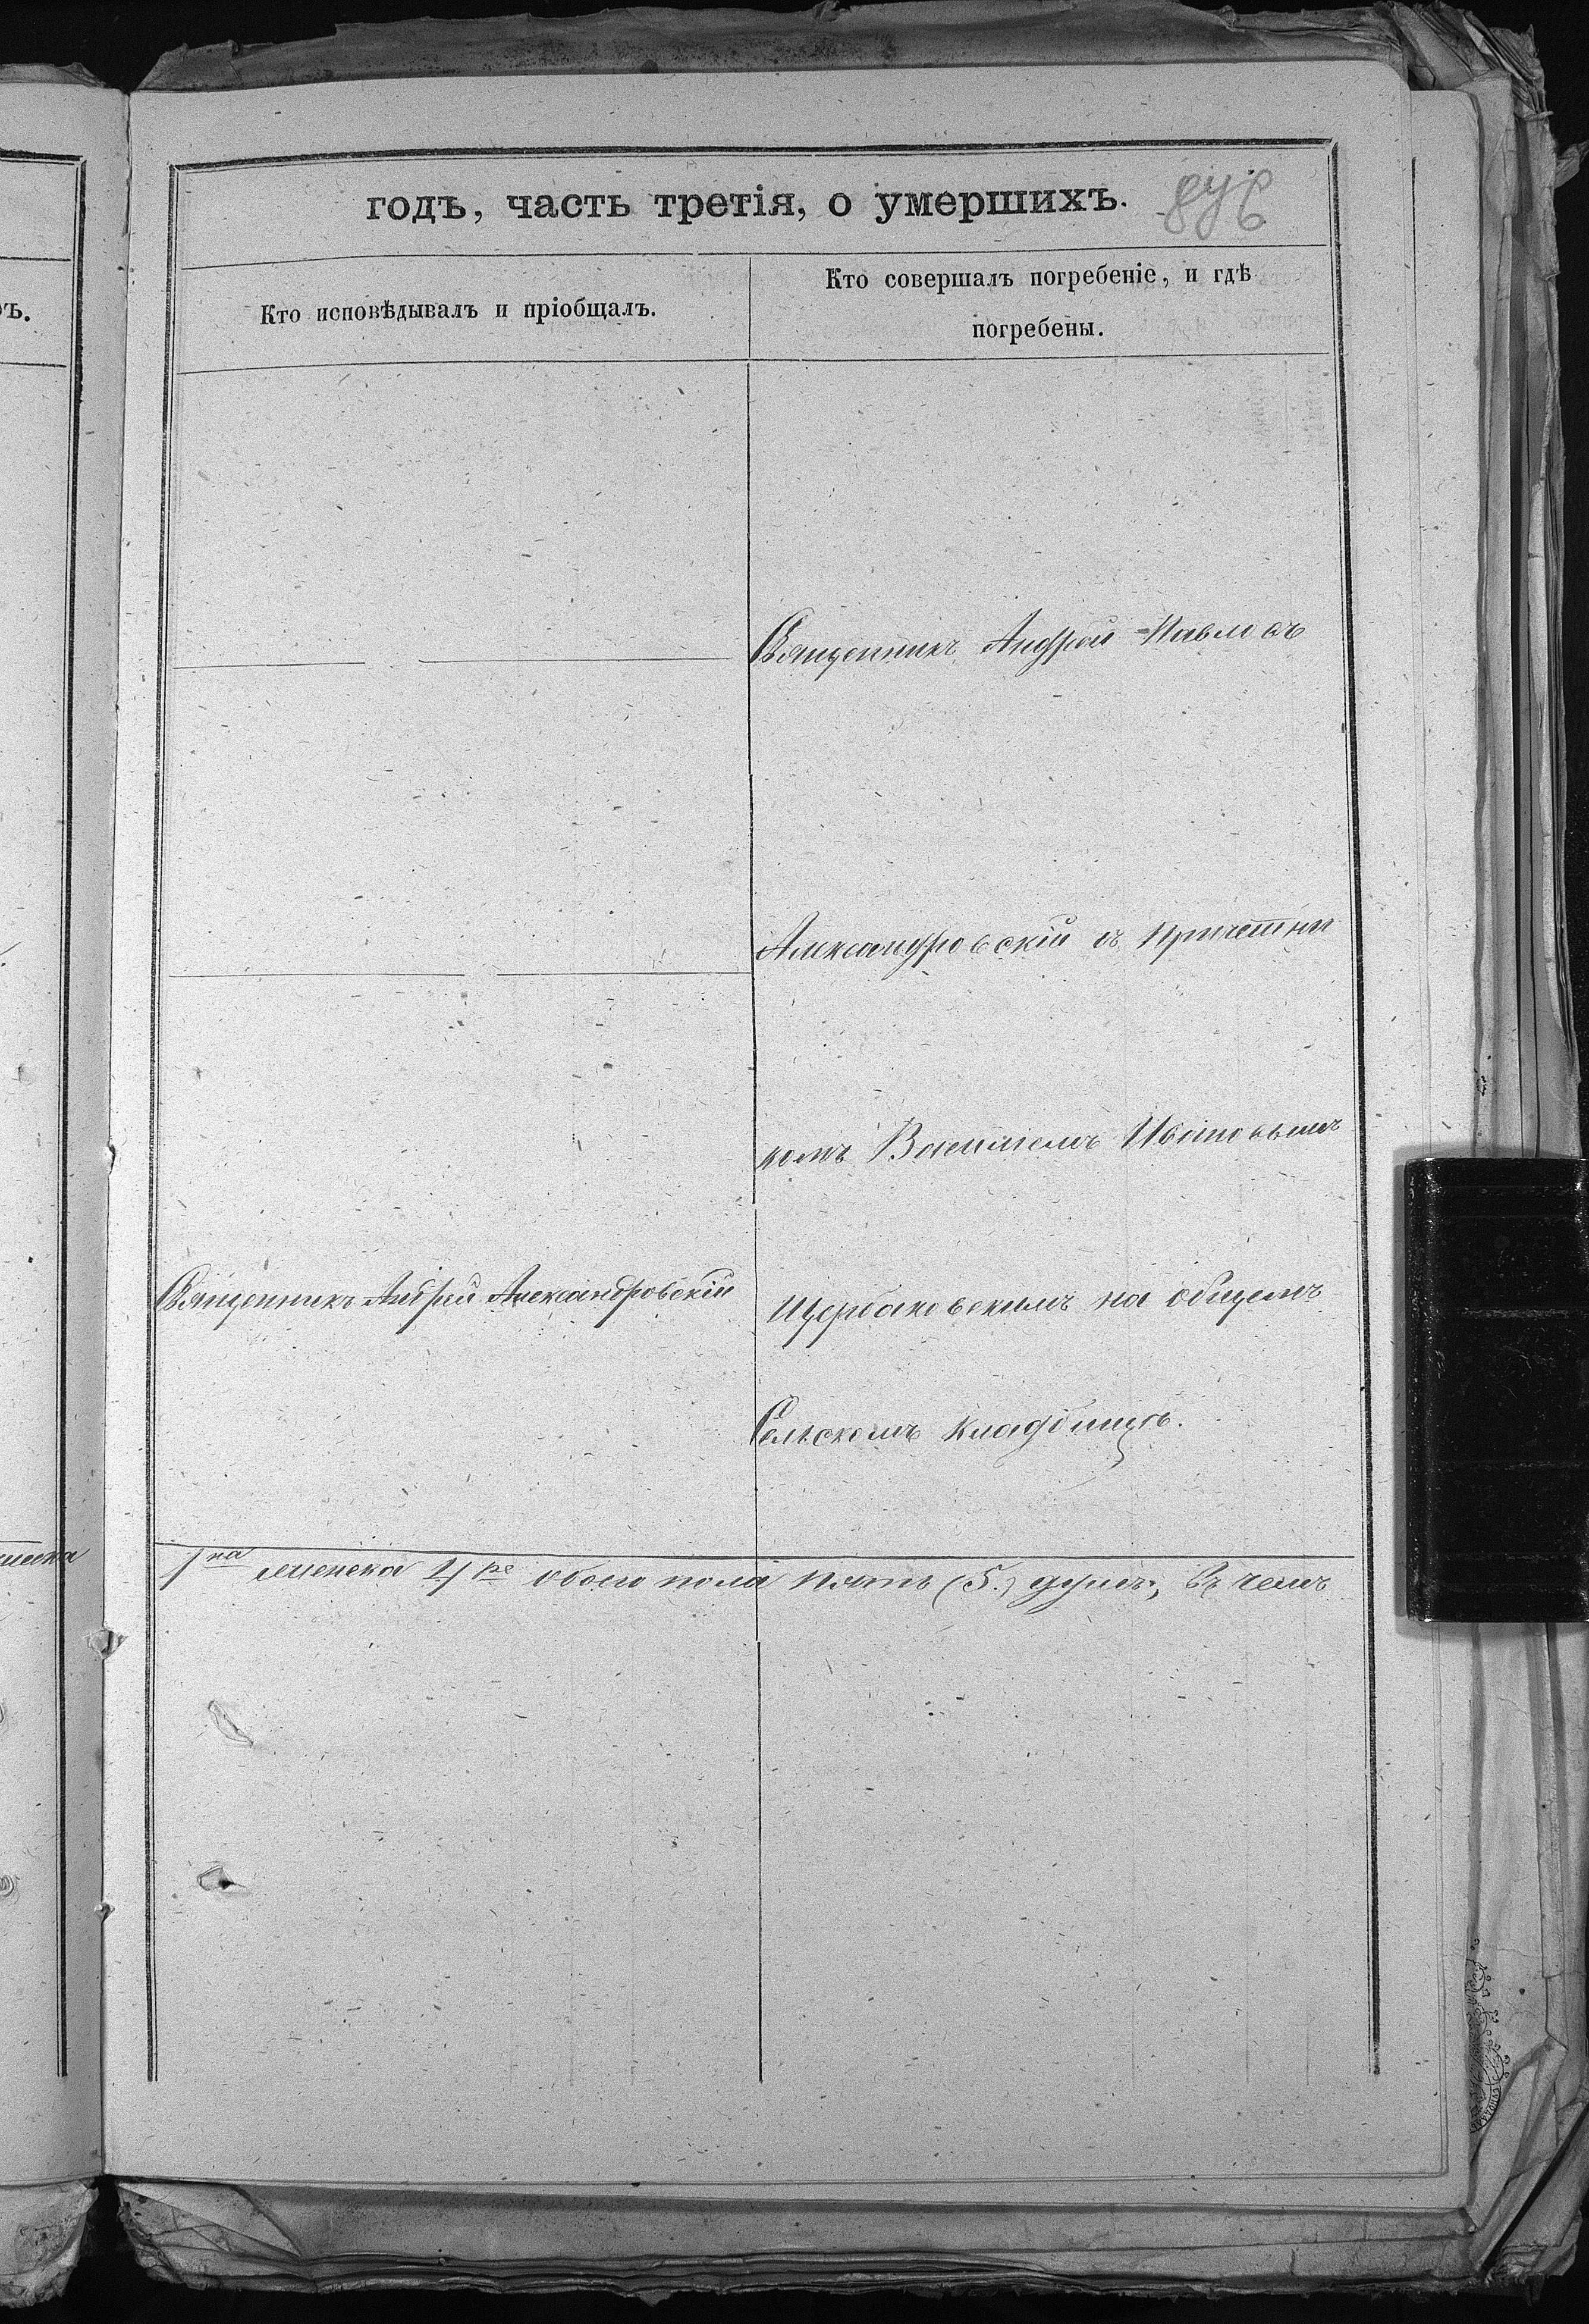 годъ, часть третія, о умершихъ.
Кто исповѣдывалъ и пріобщалъ.
Кто совершалъ погребеніе, и гдѣ
погребены.
Священникъ Андрей Павловъ
Александровскій съ причетни
комъ Василіемъ Ивановымъ
Священникъ Андрей Александровскій
Щербаковскимъ на общемъ
Сельскомъ кладбищѣ.
1на женска 4ре обоего пола пять (5.) душъ, въ чемъ